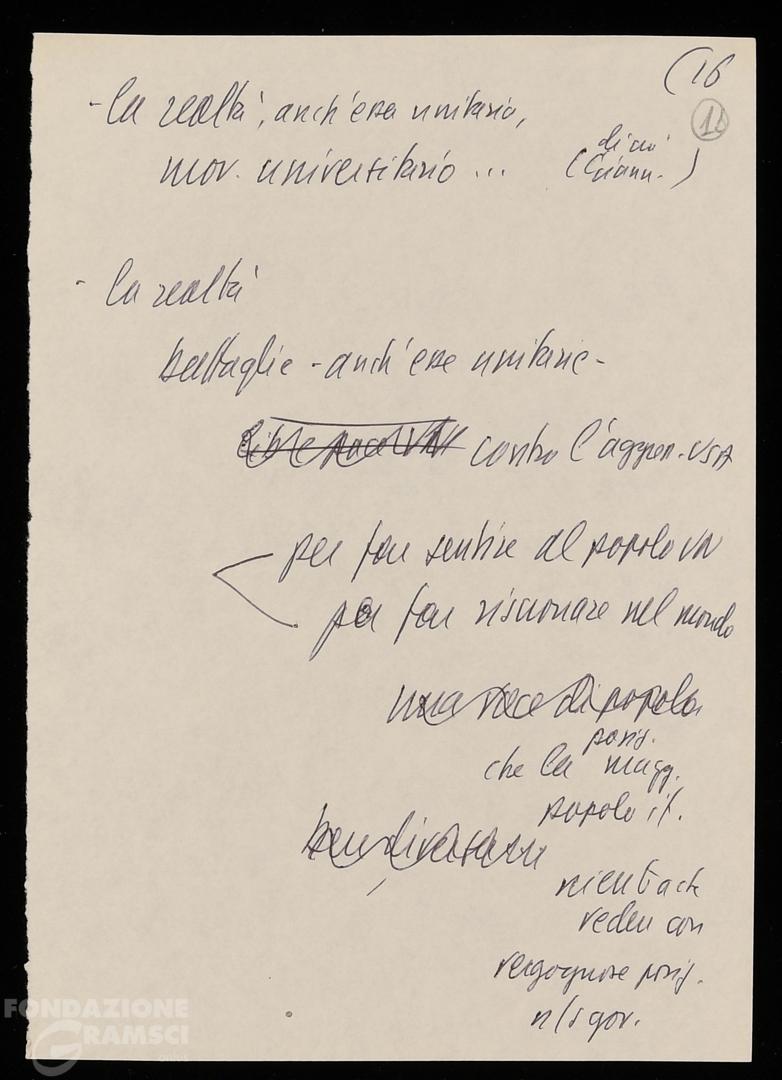 (16
16
- la realtà, anch'essa unitaria,
mov. universitario ... (di cui
Giann.)
- la realtà
battaglie - anch'esse unitarie -
contro l'aggress. USA
per far sentire al popolo VN
per far risuonare nel mondo
una voce di popolo
posiz.
che la magg.
popolo it.
ben diversa
niente a che
vedere con
vergognose posiz.
n/s gov.
FONDAZIONE
GRAMSCI
onlus